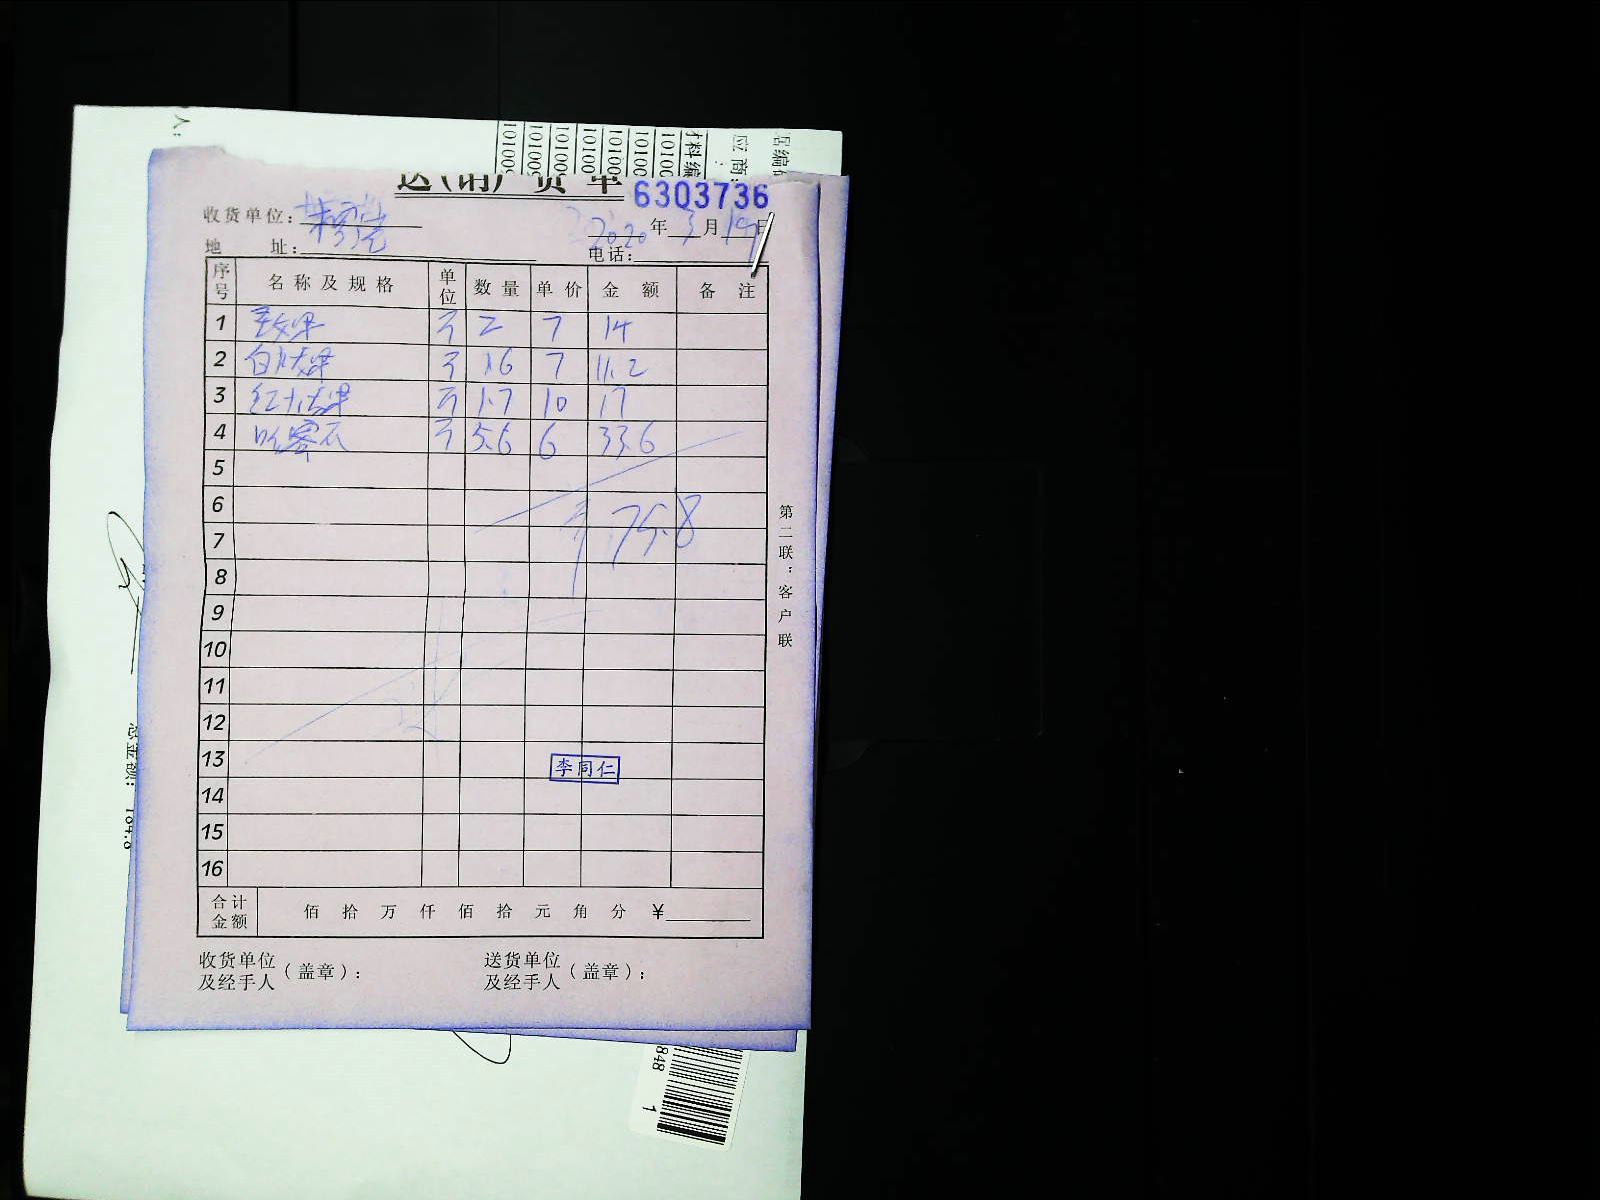 送(销)货单 6303736
收货单位:
2020年3月19日
地 址: 电话:
序号 名称及规格 单位 数量 单价 金额 备注
1 2 7 14
2 1.6 7 11.2
3 1.7 10 17
4 哈密瓜 5.6 6 33.6
5
6
7
75.8
8
9
10
11
12
13 李同仁
14
15
16
合计金额 佰 拾 万 仟 佰 拾 元 角 分 ¥
收货单位及经手人(盖章): 送货单位及经手人(盖章):
第二联:客户联
人:
10100
10100
10100
10100
10100
10100
10100
应商:
总金额: 184.8
848 1